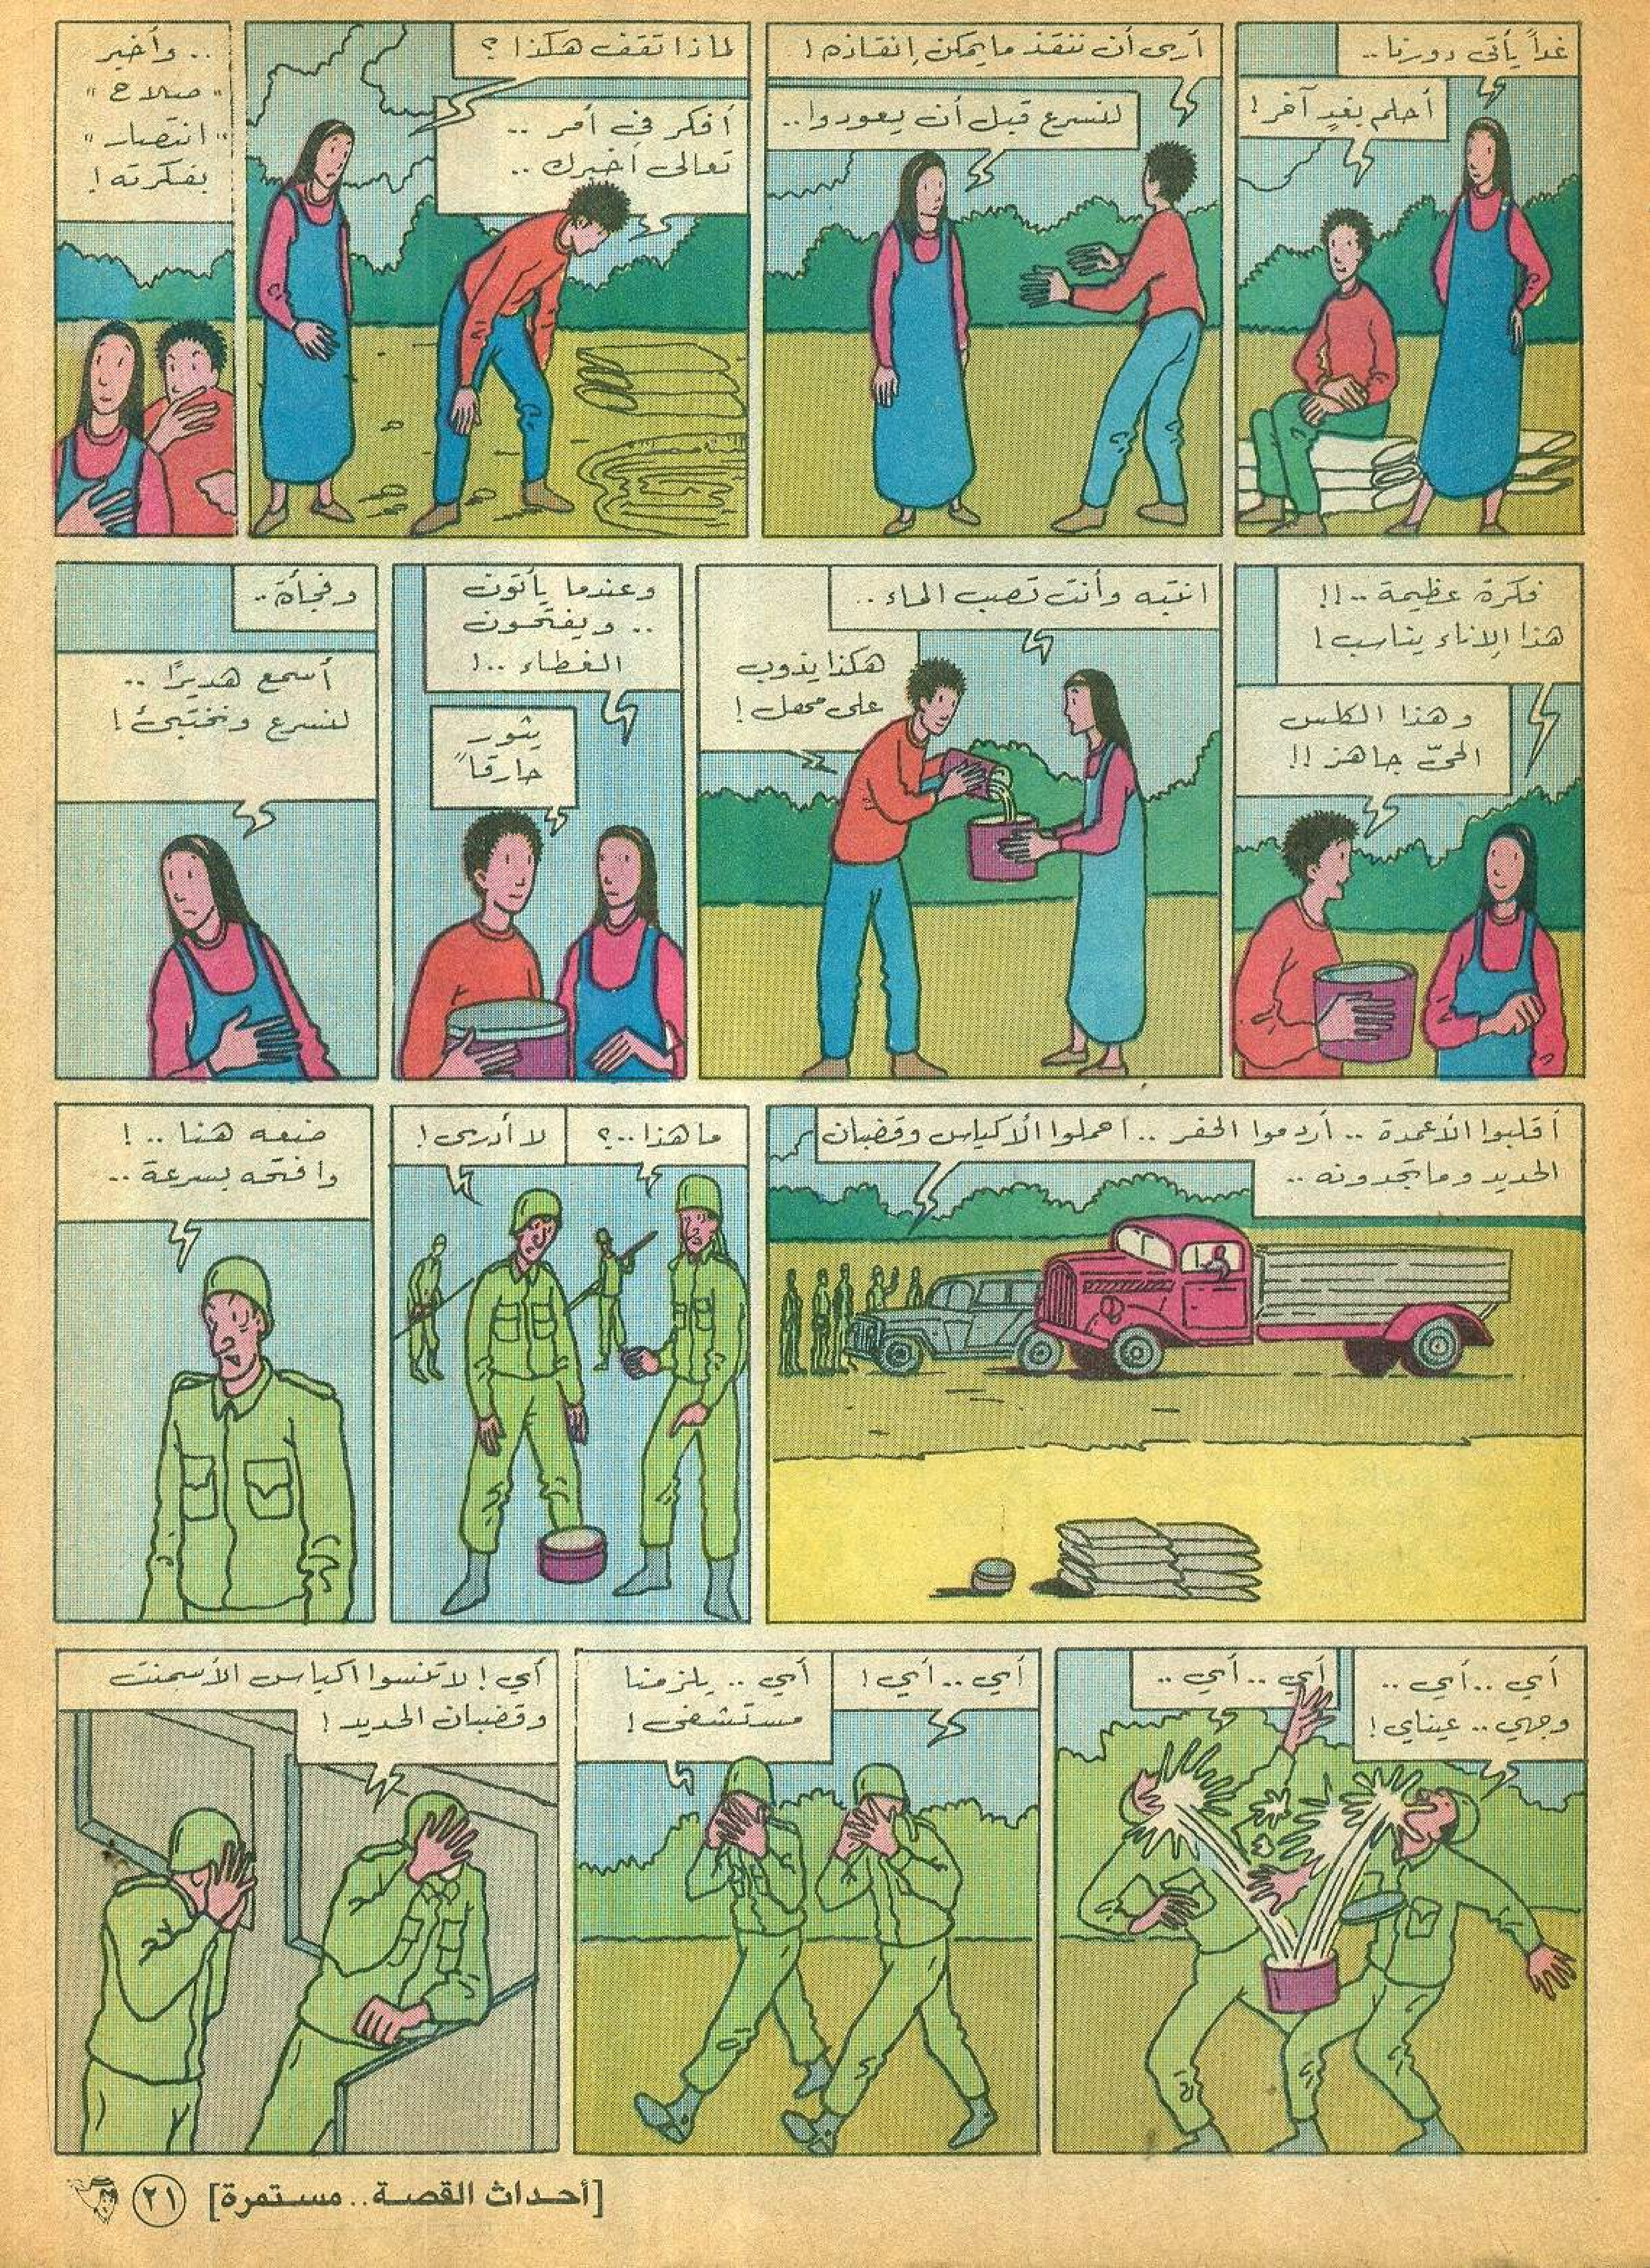 غداً يأتي دورنا..
أحلم بغدٍ آخر!
أرى أن ننقذ ما يمكن إنقاذه!
لنسرع قبل أن يعودوا..
لماذا تقف هكذا؟
أفكر في أمر ..
تعالي أخبرك ..
.. وأخبر
"صلاح"
"انتصار"
بفكرته!
فكرة عظيمة ..!!
هذا الإناء يناسب!
وهذا الكلس
الحيّ جاهز!!
انتبه وأنت تصب الماء ..
هكذا يذوب
على مهل!
وعندما يأتون
.. ويفتحون
الغطاء ..!
يثور
حارقاً
وفجأة ..
أسمع هديرًا ..
لنسرع ونختبئ!
أقلبوا الأعمدة .. أردموا الحفر .. احملوا الأكياس وقضبان
الحديد وما تجدونه ..
ما هذا ..؟
لا أدري!
ضعه هنا ..!
وافتحه بسرعة ..
أي .. أي ..
وجهي .. عيناي!
أي .. أي ..
أي .. أي!
أي .. يلزمنا
مستشفى!
أي! لا تنسوا اكياس الأسمنت
وقضبان الحديد!
[أحداث القصة.. مستمرة]
٢١